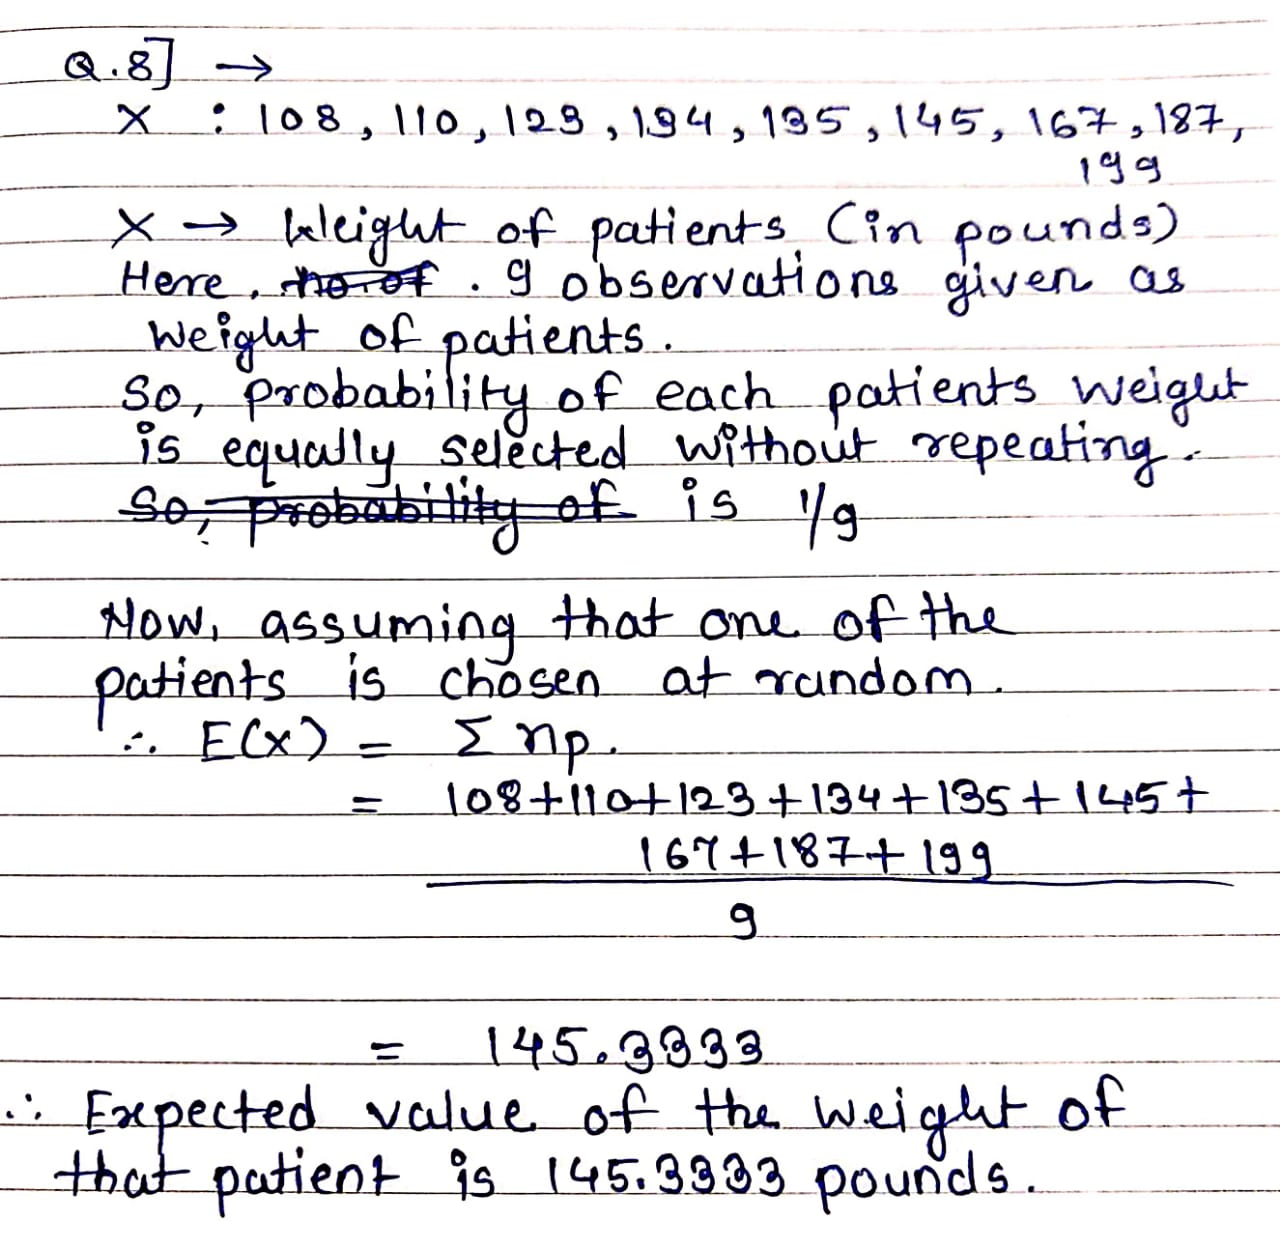 Q.8] →
X : 108, 110, 123, 134, 135, 145, 167, 187,
199
X → Weight of patients (in pounds)
Here, no of . 9 observations given as
weight of patients.
So, probability of each patients weight
is equally selected without repeating.
So, probability of is 1/9
Now, assuming that one of the
patients is chosen at random.
∴ E(X) = Σ np.
= 108+110+123+134+135+145+
167+187+199
9
= 145.3333
∴ Expected value of the weight of
that patient is 145.3333 pounds.